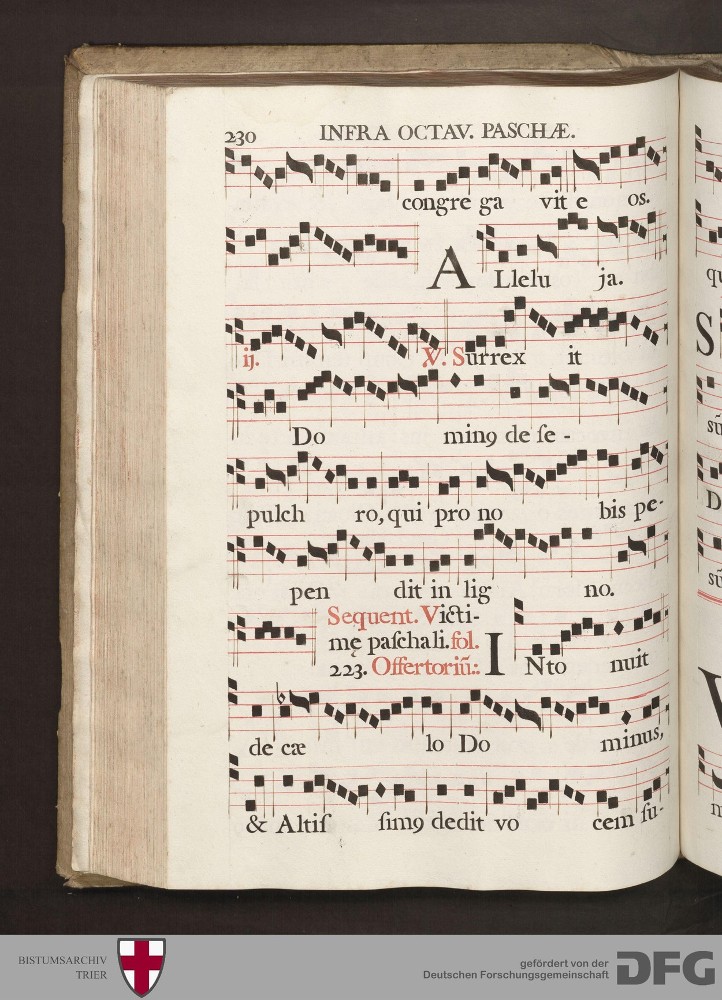 230 INFRA OCTAV. PASCHÆ.
congre ga vit e os.
A Llelu ja.
ij. ℣. Surrex it
Do ming de se -
pulch ro, qui pro no bis pe-
pen dit in lig no.
Sequent. Victi-
mę paschali. fol.
223. Offertoriũ: INto nuit
de cæ lo Do minus,
& Altiſ ſim9 dedit vo cem ſu-
qu
S
sũ
D
sũ
V
BISTUMSARCHIV
TRIER
gefördert von der
Deutschen Forschungsgemeinschaft
DFG